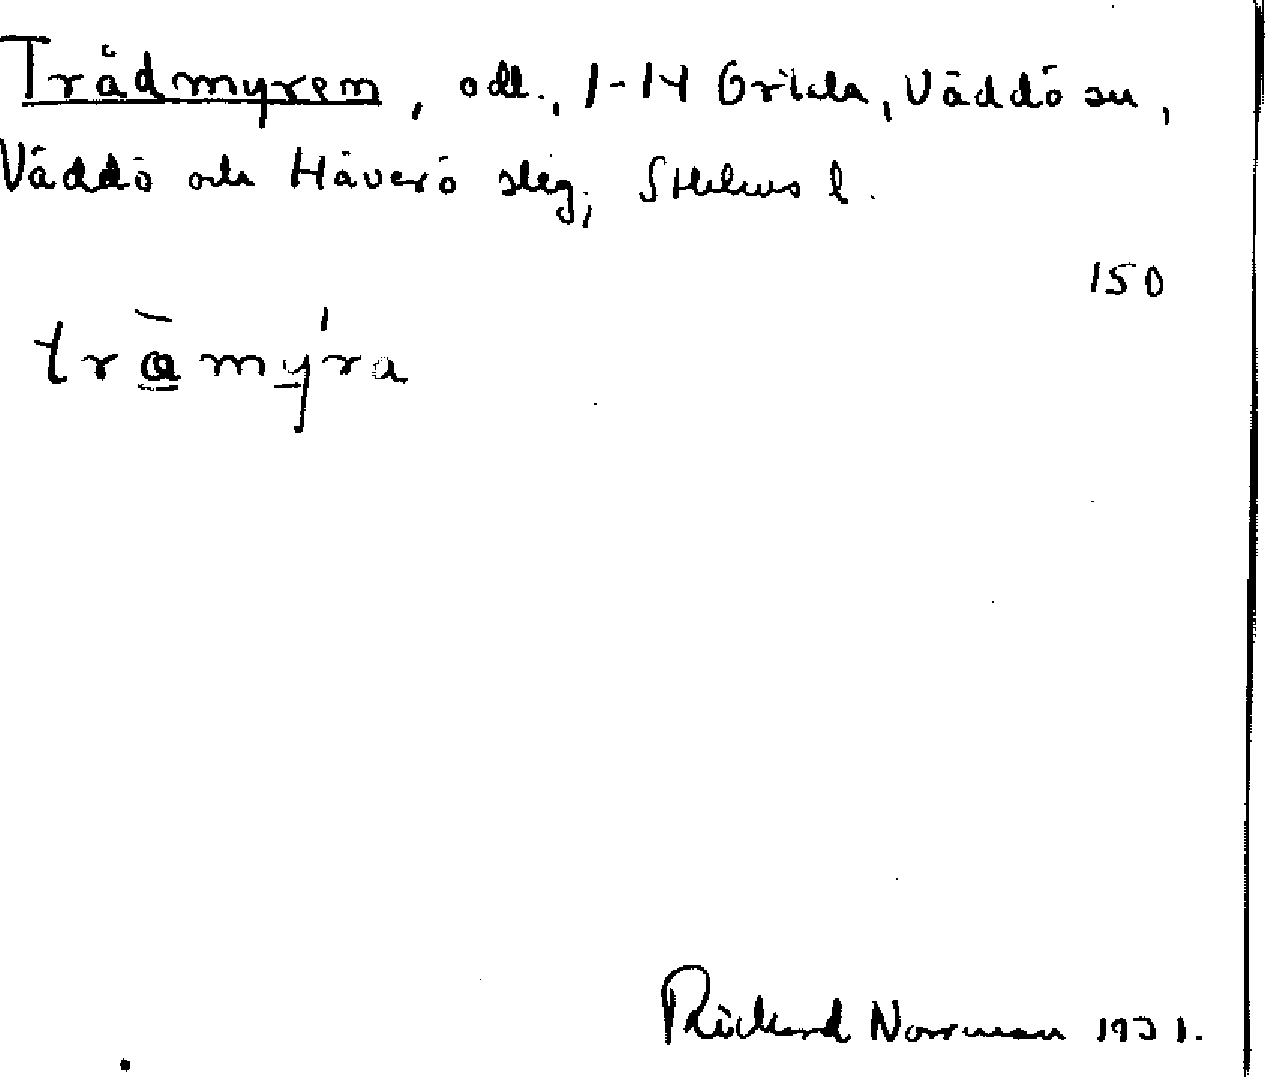 Trädmyren, odl., 1-14 Gribla, Väddö sn,
Väddö och Häverö slg, Sthlms l.
150
tràmýra
Rickard Norrman 1931.